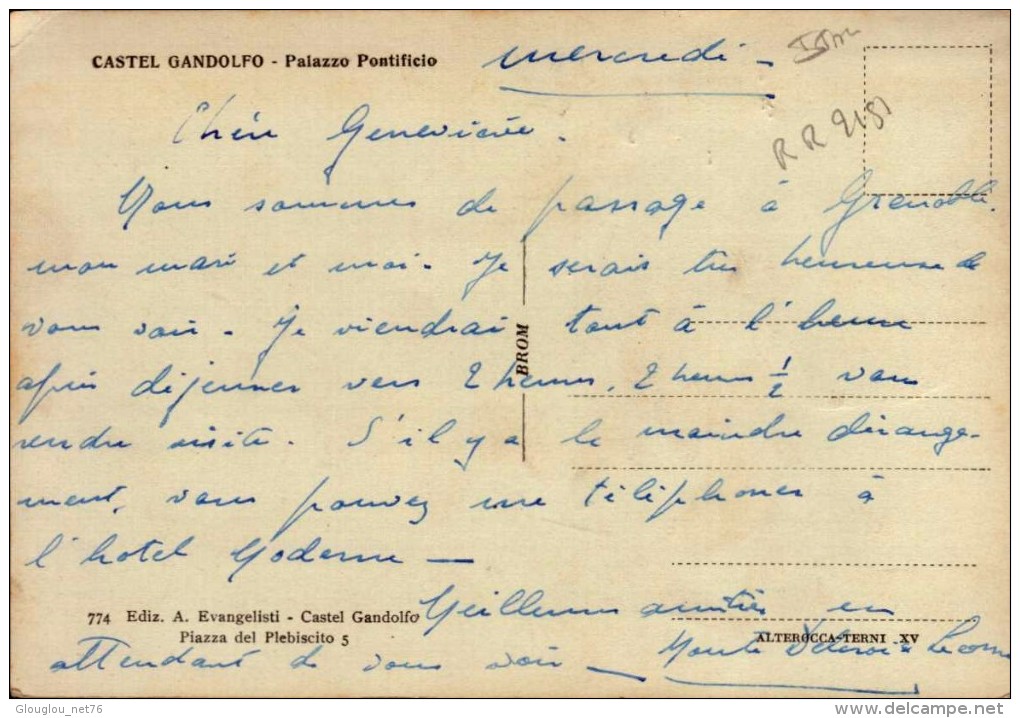 CASTEL GANDOLFO - Palazzo Pontificio
mercredi -
R R 2181
Chère Geneviève.
Nous sommes de passage à Grenoble.
mon mari et moi. Je serais très heureuse de
vous voir - Je viendrai tout à l'heure
BROM
après déjeuner vers 2 heures, 2 heures 1/2 vous
rendre visite. S'il y a le moindre dérange-
ment, vous pouvez me téléphoner à
l'hotel Moderne —
774 Ediz. A. Evangelisti - Castel Gandolfo
Piazza del Plebiscito 5
Meilleures amitiés en
ALTEROCCA-TERNI XV
attendant de vous voir -